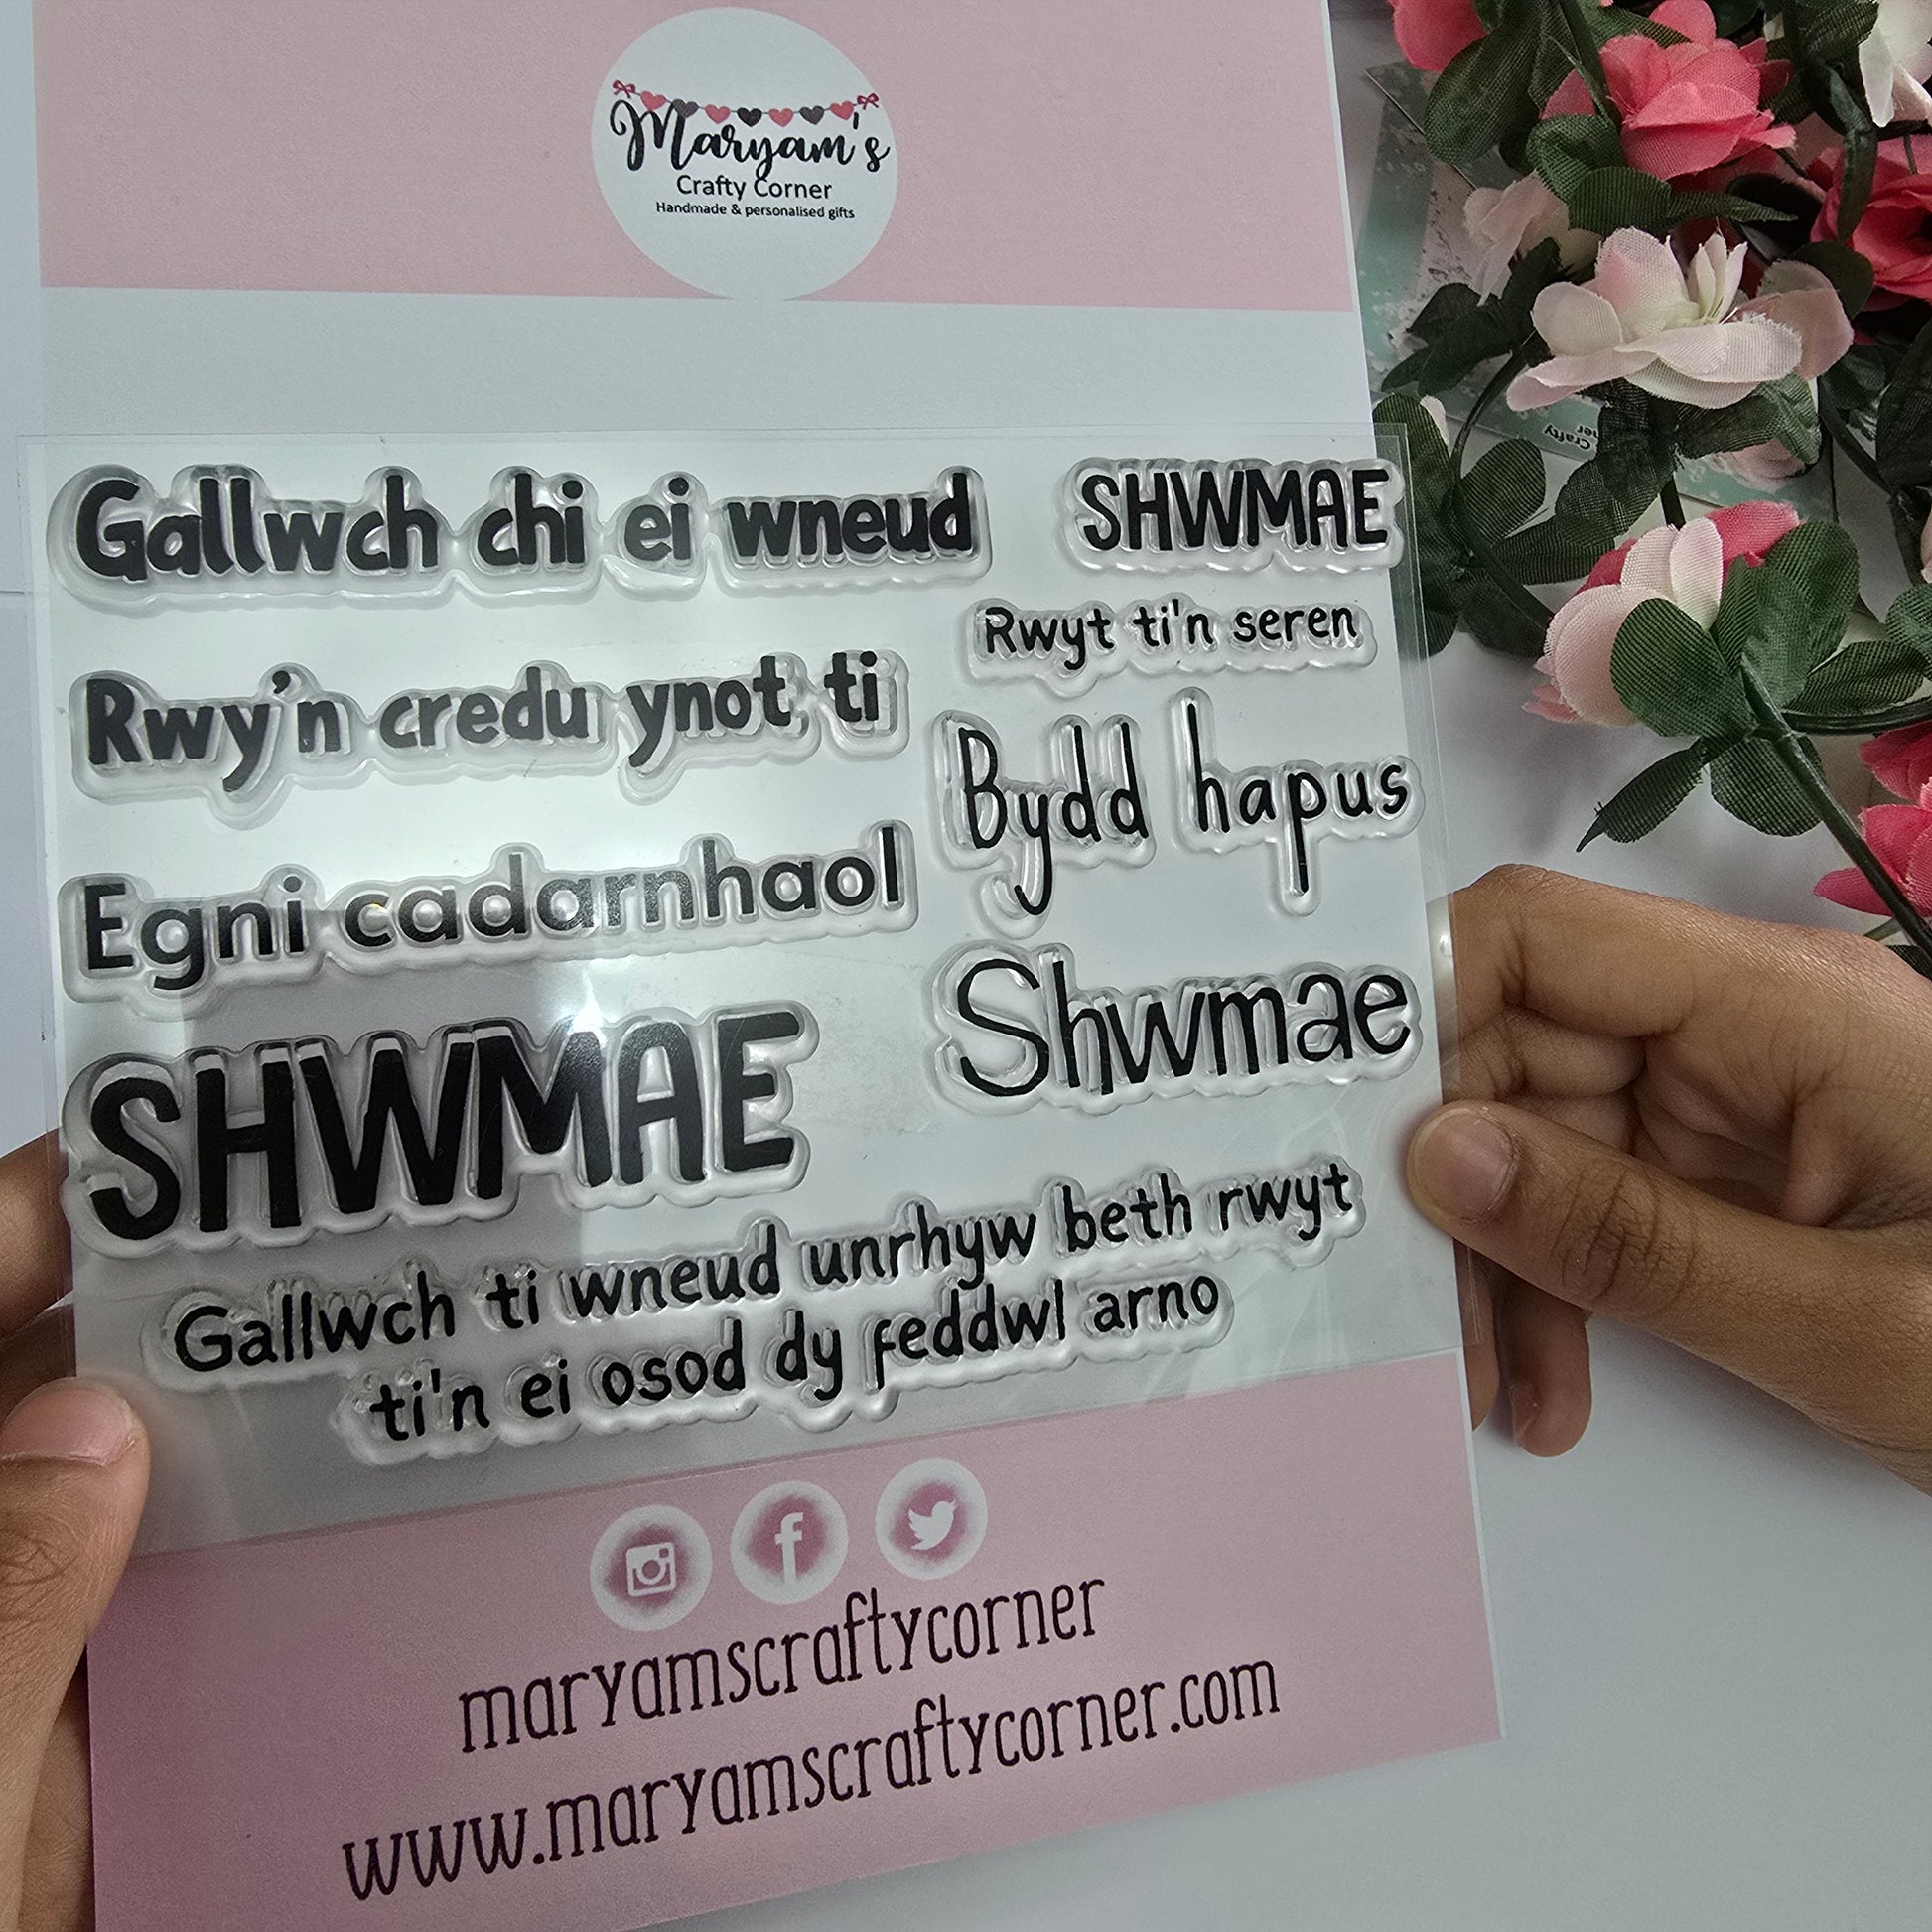 Maryam's
Crafty Corner
Handmade & personalised gifts
Gallwch chi ei wneud
SHWMAE
Rwyt ti'n seren
Rwy'n credu ynot ti
Bydd hapus
Egni cadarnhaol
Shwmae
SHWMAE
Gallwch ti wneud unrhyw beth rwyt
ti'n ei osod dy feddwl arno
maryamscraftycorner
www.maryamscraftycorner.com
Crafty